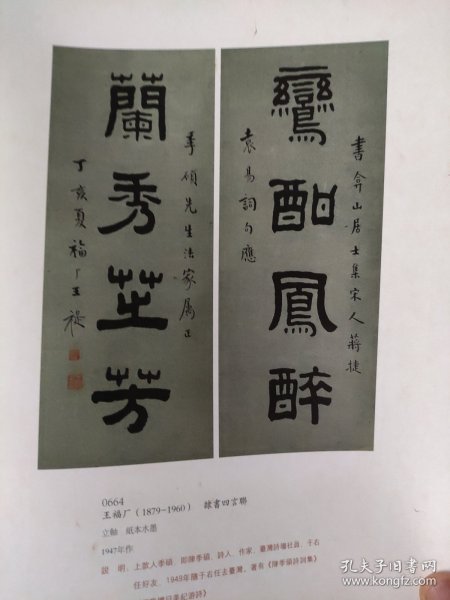 鸞酣鳳醉
書弇山居士集宋人蔣捷
袁易詞句應
蘭秀芷芳
季碩先生法家屬正
丁亥夏福厂王禔
0664
王福厂（1879-1960） 隸書四言聯
立軸 紙本水墨
1947年作
說 明：上款人季碩，即陳季碩，詩人、作家，臺灣詩壇社員，于右
任好友，1949年隨于右任去臺灣，著有《陳季碩詩詞集》
孔夫子旧书网